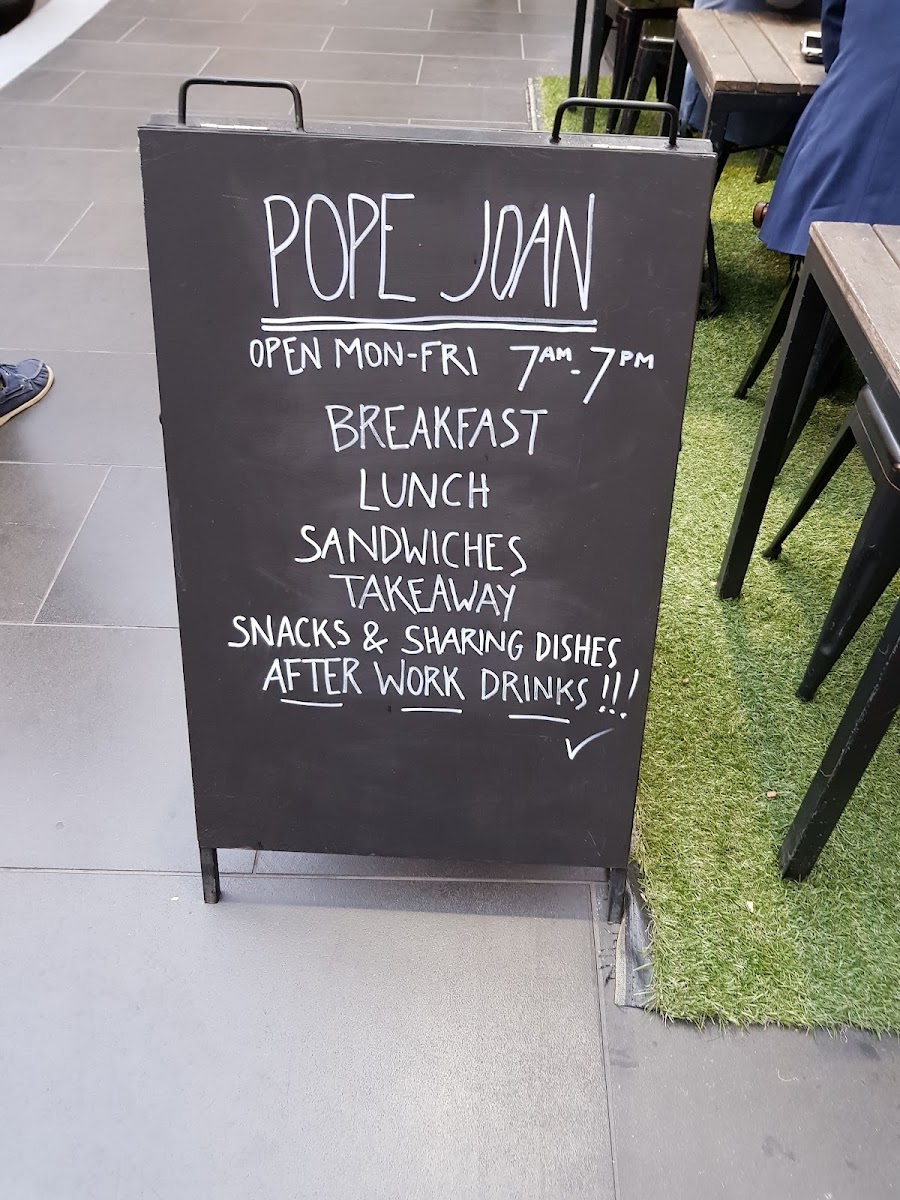 POPE JOAN
OPEN MON-FRI 7AM-7PM
BREAKFAST
LUNCH
SANDWICHES
TAKEAWAY
SNACKS & SHARING DISHES
AFTER WORK DRINKS!!!